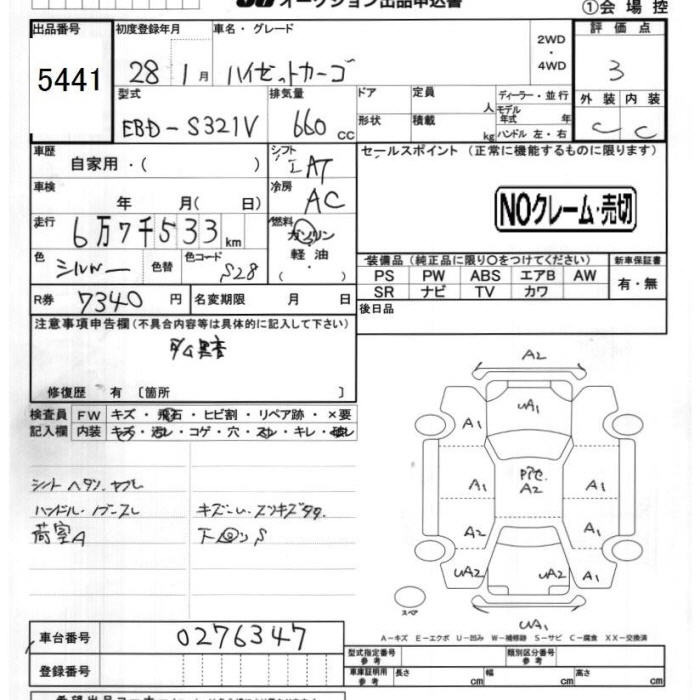 オークション出品申込書
①会場控
出品番号 初度登録年月 車名・グレード 評価点
5441 28 1月 ハイゼットカーゴ 2WD・4WD 3
型式 排気量 ドア 定員 人 ディーラー・並行 外装 内装
EBD-S321V 660cc 形状 積載 kg モデル年式 年 ハンドル 左・右 C C
車歴 自家用・( ) シフト IAT セールスポイント (正常に機能するものに限ります)
車検 年 月( 日) 冷房 AC
NOクレーム・売切
走行 6万7千533km 燃料 ガソリン
色 シルバー 色替 色コード S28 軽油・( )
装備品(純正品に限り○をつけてください) 新車保証書
PS PW ABS エアB AW 有・無
SR ナビ TV カワ
R券 7340円 名変期限 月 日 後日品
注意事項申告欄(不具合内容等は具体的に記入して下さい)
修復歴 有〔箇所 〕
検査員 FW キズ・飛石・ヒビ割・リペア跡・×要
記入欄 内装 キズ・汚レ・コゲ・穴・スレ・キレ・破レ
A2
UA1
A1
A2
A1 A1
A2 A1
UA2 UA2 A1
UA1
シートヘタリ.ヤブレ
ハンドル・ノブスレ キズ
荷室A 下回りS
スペア
A-キズ E-エクボ U-凹み W-補修跡 S-サビ C-腐食 XX-交換済
車台番号 0276347
登録番号
型式指定番号 参考 類別区分番号 参考
車庫証明用 参考 長さ cm 幅 cm 高さ cm
希望出品コーナー